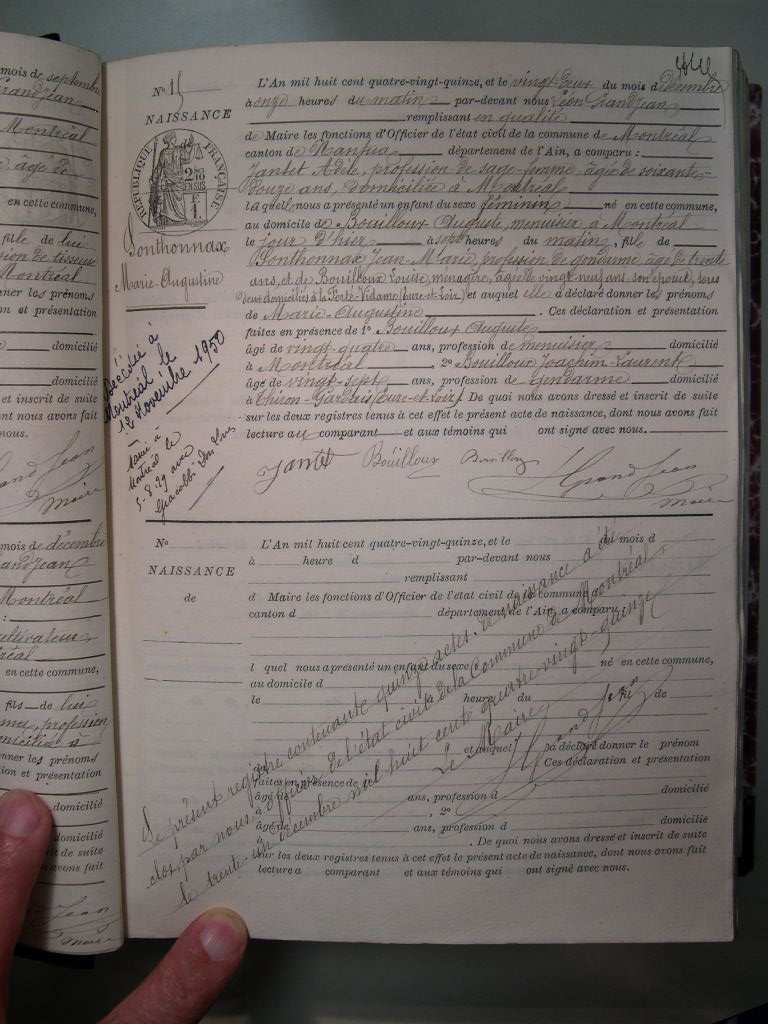 mois de septembre
Grandjean
Montréal
âgé de
en cette commune,
fille de lui
Montréal
donner les prénoms
ion et présentation
domicilié
domicilié
et inscrit de suite
dont nous avons fait
nous.
Grand Jean
maire
mois de décembre
Grandjean
Montréal
cultivateur
en cette commune,
fils de lui
profession
domiciliée à
donner les prénoms
ion et présentation
domicilié
domicilié
et inscrit de suite
avons fait
Grand Jean
maire
No 15
NAISSANCE
RÉPUBLIQUE FRANÇAISE
Ponthonnax
Marie-Augustine
Décédée à
Montréal le
12 Novembre 1950
L'An mil huit cent quatre-vingt-quinze, et le vingt-deux du mois d Décembre
à onze heures du matin par-devant nous Léon Grandjean
remplissant en qualité
de Maire les fonctions d'Officier de l'état civil de la commune de Montréal
canton de Nantua département de l'Ain, a comparu :
Jantet Adèle, profession de sage-femme, âgée de soixante-
douze ans, domiciliée à Montréal
laquelle nous a présenté un enfant du sexe féminin né en cette commune,
au domicile de Bouilloux Auguste, menuisier à Montréal
le jour d'hier à sept heures du matin, fille de
Ponthonnax Jean-Marie, profession de gendarme, âgé de trente
ans, et de Bouilloux Louise, ménagère, âgée de vingt-neuf ans son épouse, tous
deux domiciliés à la Ferté-Vidame (Eure-et-Loir) et auquel elle a déclaré donner les prénoms
de Marie-Augustine. Ces déclaration et présentation
faites en présence de 1o Bouilloux Auguste
âgé de vingt-quatre ans, profession de menuisier domicilié
à Montréal, 2o Bouilloux Joachim-Laurent
âgé de vingt-sept ans, profession de Gendarme domicilié
à Thiron-Gardais (Eure-et-Loir). De quoi nous avons dressé et inscrit de suite
sur les deux registres tenus à cet effet le présent acte de naissance, dont nous avons fait
lecture au comparant et aux témoins qui ont signé avec nous.
Jantet Bouilloux Bouilloux Grand Jean
maire
No
NAISSANCE
de
L'An mil huit cent quatre-vingt-quinze, et le du mois d
à heure d par-devant nous
remplissant
d Maire les fonctions d'Officier de l'état civil de la commune
canton d département de l'Ain, a comparu
l quel nous a présenté un enfant du sexe né en cette commune,
au domicile d
le à heure du de
et auquel a déclaré donner le prénom
Ces déclaration et présentation
faites en présence de
âgé de ans, profession d domicilié
à , 2o
âgé de ans, profession d domicilié
à . De quoi nous avons dressé et inscrit de suite
sur les deux registres tenus à cet effet le présent acte de naissance, dont nous avons fait
lecture a comparant et aux témoins qui ont signé avec nous.
Le présent registre contenant quinze actes de naissance a été
clos par nous officier de l'état civil de la Commune de Montréal,
le trente-un décembre mil huit cent quatre-vingt-quinze
Le Maire
Grand Jean